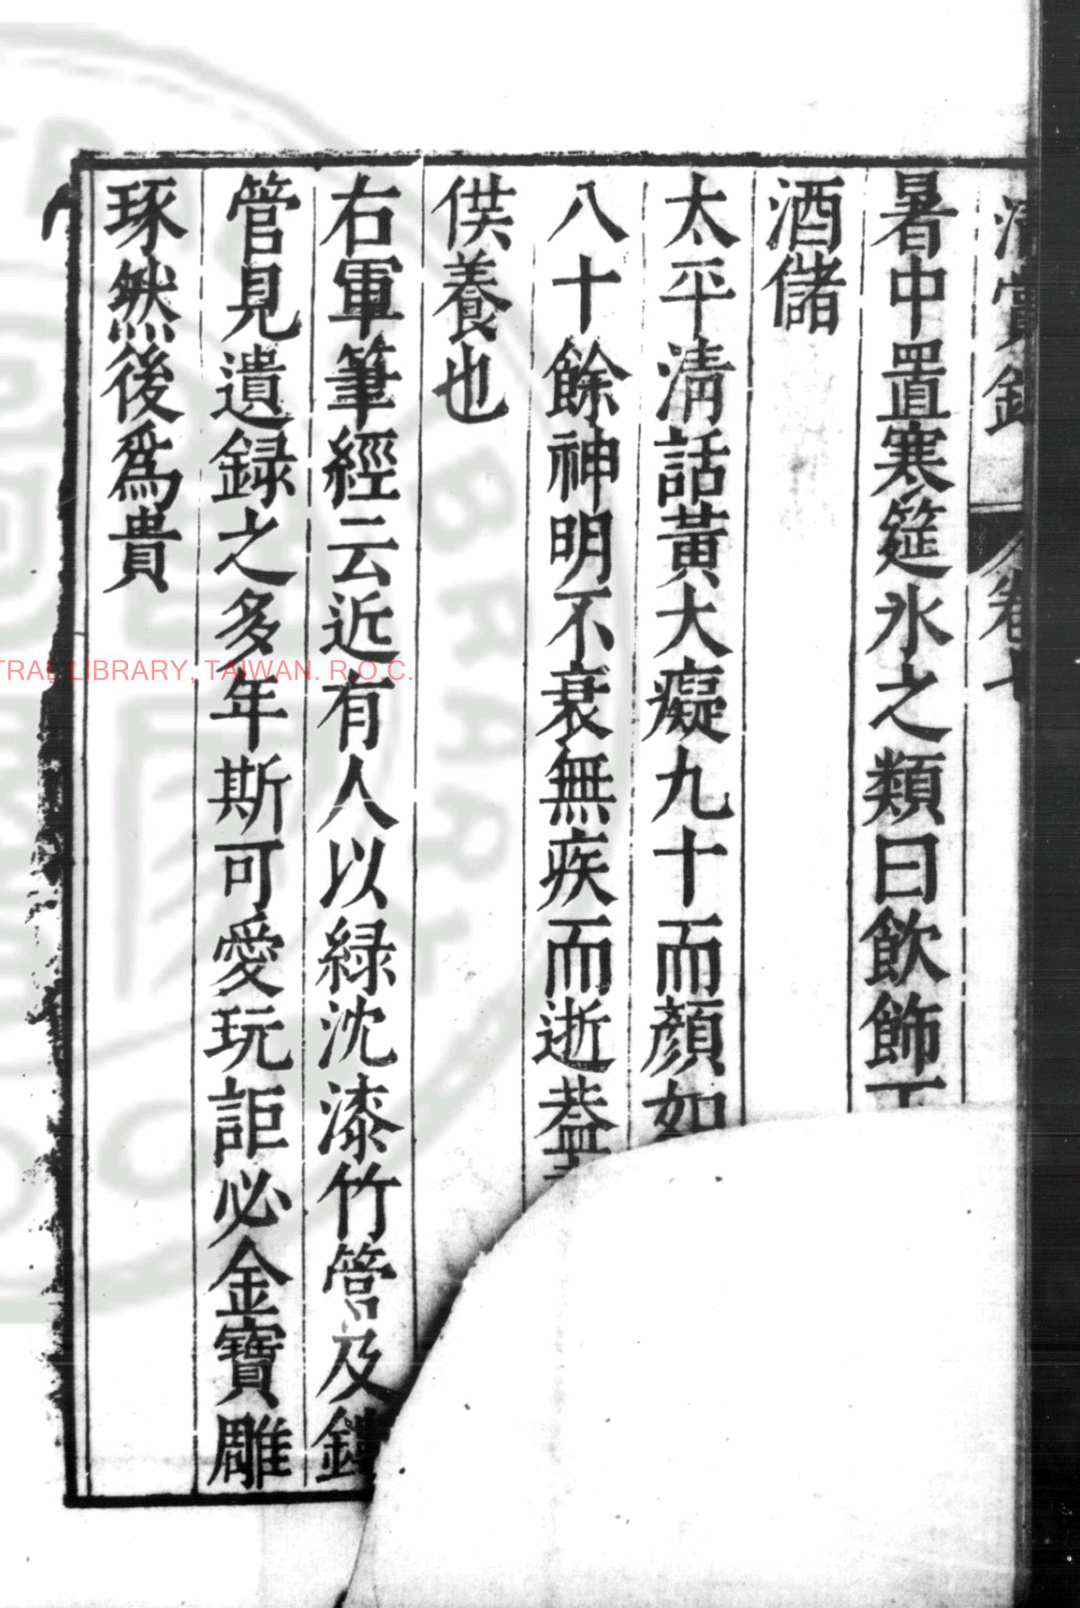 清賞錄 卷七
暑中置寒筵氷之類曰飲飾
酒儲
太平清話黃大癡九十而顏如
八十餘神明不衰無疾而逝蓋
供養也
右軍筆經云近有人以綠沈漆竹管及鏤
管見遺録之多年斯可愛玩詎必金寶雕
琢然後爲貴
TRAL LIBRARY, TAIWAN. R.O.C.